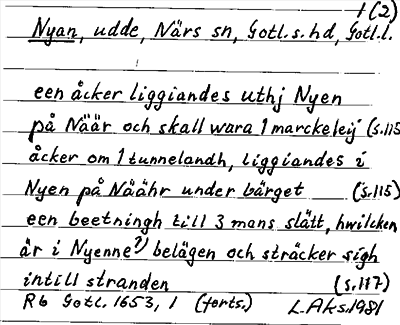 1 (2)
Nyan, udde, Närs sn, Gotl.s.hd, Gotl.l.
een åcker liggiandes uthj Nyen
på Näär och skall wara 1 marckeleij (s.115
åcker om 1 tunnelandh, liggiandes i
Nyen på Näähr under bärget (s.115)
een beetningh till 3 mans slått, hwilcken
är i Nyenne?) belägen och sträcker sigh
intill stranden (s.117)
Rb Gotl. 1653, 1 (forts.) L.Aks.1981